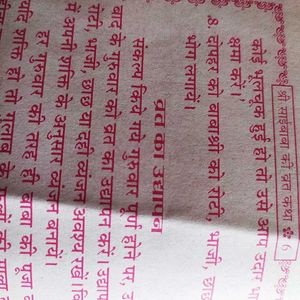 श्री साईंबाबा की व्रत कथा 6
कोई भूलचूक हुई हो तो उसे आप उदार भा
क्षमा करें।
8. दोपहर को बाबाश्री को रोटी, भाजी, छाछ
भोग लगायें।
व्रत का उद्यापन
संकल्प किये गये गुरुवार पूर्ण होने पर, उ
बाद के गुरुवार को व्रत का उद्यापन करें। उद्यापन
रोटी, भाजी, छाछ या दही व्यंजन अवश्य रखें। वि
में अपनी शक्ति के अनुसार व्यंजन बनायें।
हर गुरुवार की तरह ही बाबा की पूजा
यदि शक्ति हो तो गुलाब के